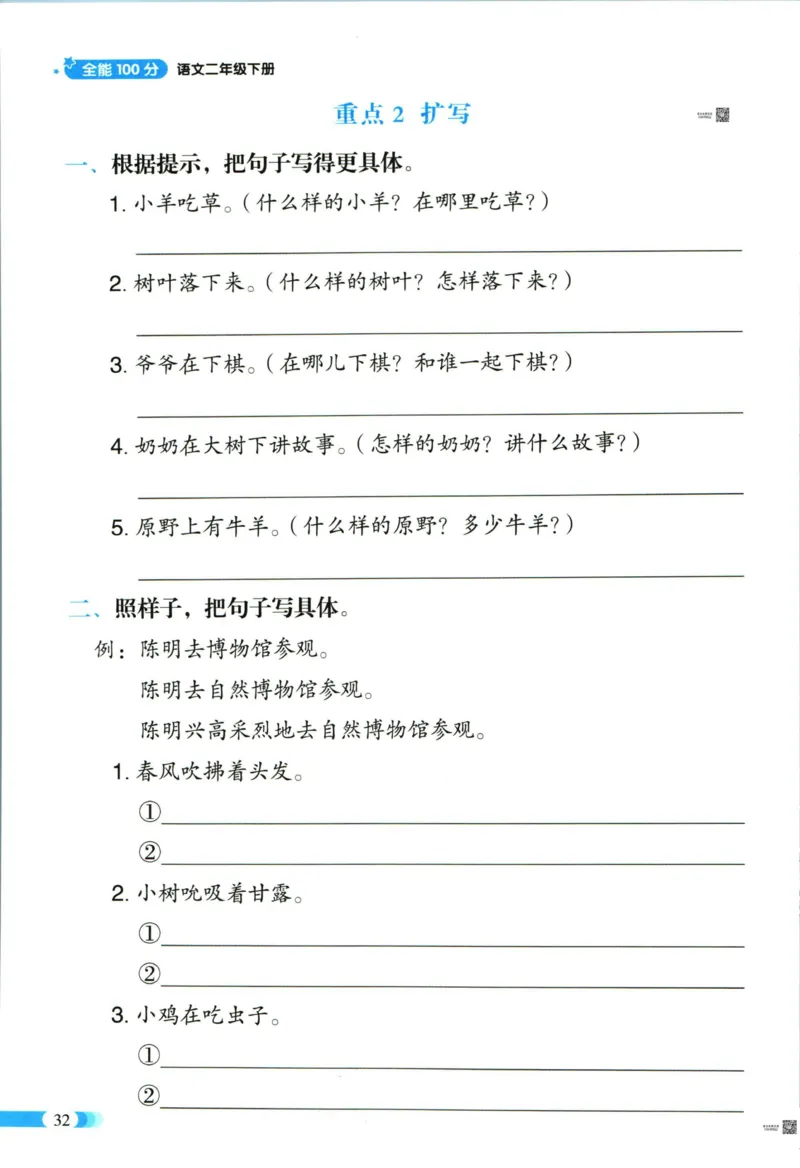 全能100分 语文二年级下册
重点2 扩写
一、根据提示，把句子写得更具体。
1. 小羊吃草。（什么样的小羊？在哪里吃草？）
2. 树叶落下来。（什么样的树叶？怎样落下来？）
3. 爷爷在下棋。（在哪儿下棋？和谁一起下棋？）
4. 奶奶在大树下讲故事。（怎样的奶奶？讲什么故事？）
5. 原野上有牛羊。（什么样的原野？多少牛羊？）
二、照样子，把句子写具体。
例：陈明去博物馆参观。
陈明去自然博物馆参观。
陈明兴高采烈地去自然博物馆参观。
1. 春风吹拂着头发。
①
②
2. 小树吮吸着甘露。
①
②
3. 小鸡在吃虫子。
①
②
32